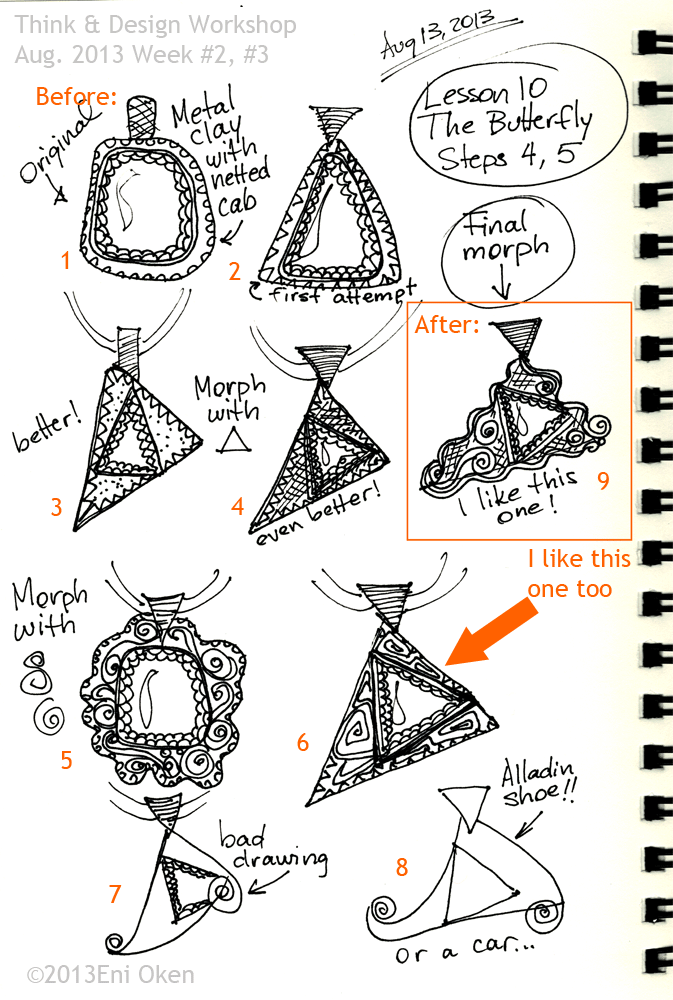 Think & Design Workshop
Aug. 2013 Week #2, #3
Aug 13, 2013
Lesson 10
The Butterfly
Steps 4, 5
Before:
Original
Metal
clay
with
netted
cab
1
2
first attempt
Final
morph
better!
3
Morph
with
4
even better!
After:
I like this
one!
9
I like this
one too
Morph
with
5
6
bad
drawing
7
Alladin
shoe!!
8
or a car...
©2013Eni Oken